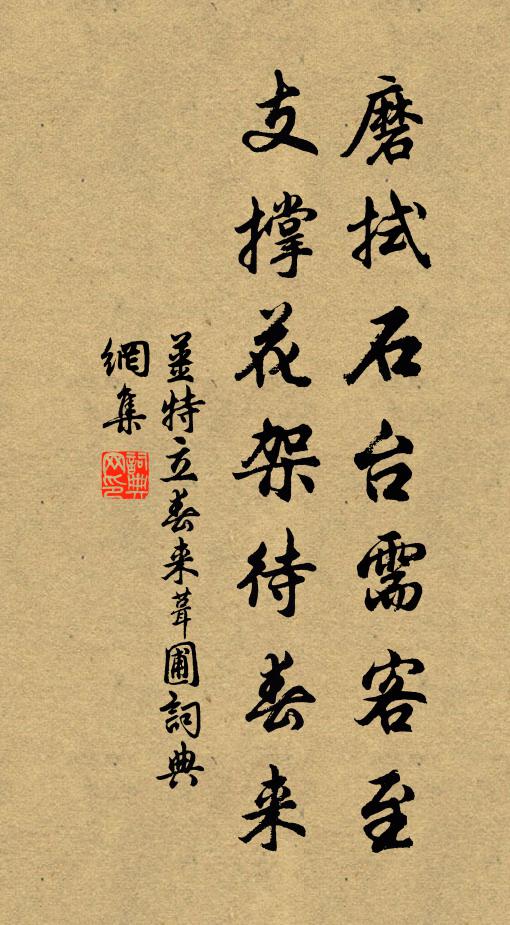 磨拭石台需客至
支撐花架待春来
姜特立春来葺圃詞典
網集
詞典网印